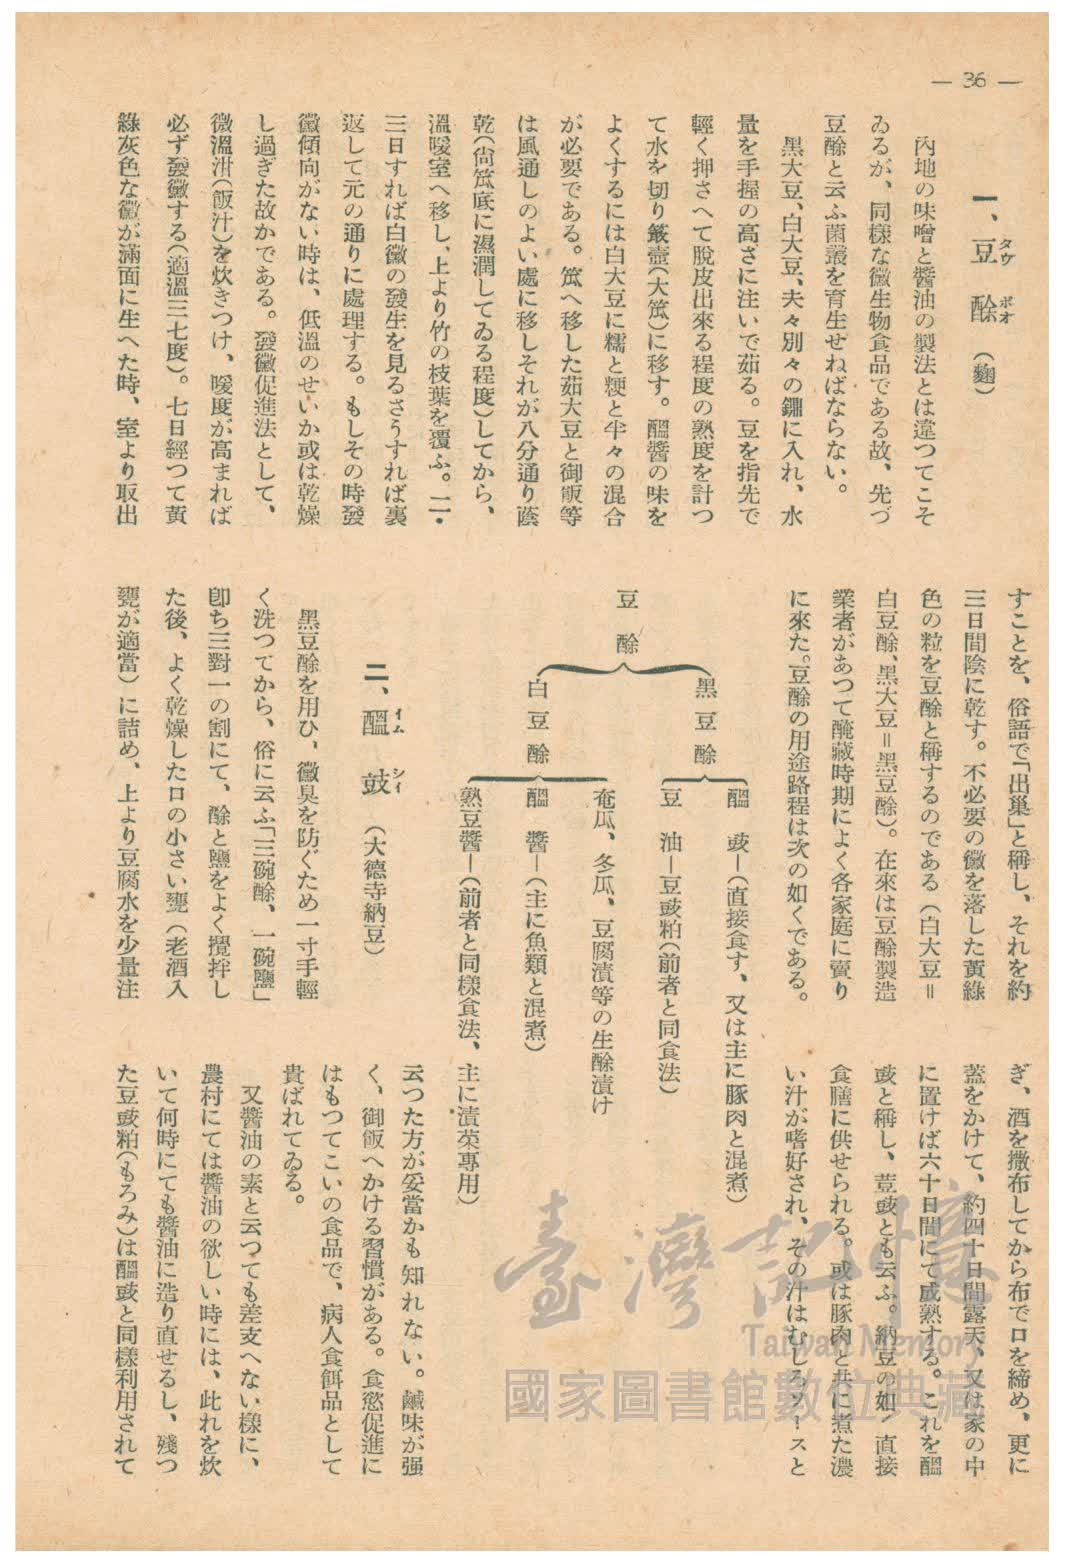 — 36 —
一、豆酴（麴）
タウ ボオ
內地の味噌と醬油の製法とは違つてこそ
ゐるが、同樣な黴生物食品である故、先づ
豆酴と云ふ菌叢を育生せねばならない。
黑大豆、白大豆、夫々別々の鍋に入れ、水
量を手握の高さに注いで茹る。豆を指先で
輕く押さへて脫皮出來る程度の熟度を計つ
て水を切り簸壺(大笊)に移す。醞醬の味を
よくするには白大豆に糯と粳と半々の混合
が必要である。笊へ移した茹大豆と御飯等
は風通しのよい處に移しそれが八分通り蔭
乾(尙笊底に濕潤してゐる程度)してから、
溫暖室へ移し、上より竹の枝葉を覆ふ。二・
三日すれば白黴の發生を見るさうすれば裏
返して元の通りに處理する。もしその時發
黴傾向がない時は、低溫のせいか或は乾燥
し過ぎた故かである。發黴促進法として、
微溫泔(飯汁)を炊きつけ、暖度が高まれば
必ず發黴する(適溫三七度)。七日經つて黃
綠灰色な黴が滿面に生へた時、室より取出
すことを、俗語で「出巢」と稱し、それを約
三日間陰に乾す。不必要の黴を落した黃綠
色の粒を豆酴と稱するのである（白大豆＝
白豆酴、黑大豆＝黑豆酴）。在來は豆酴製造
業者があつて醃藏時期によく各家庭に賣り
に來た。豆酴の用途路程は次の如くである。
豆酴
黑豆酴
醞豉—(直接食す、又は主に豚肉と混煮)
豆油—豆豉粕(前者と同食法)
白豆酴
奄瓜、冬瓜、豆腐漬等の生酴漬け
醞醬—(主に魚類と混煮)
熟豆醬—(前者と同樣食法、主に漬菜專用)
二、醞豉（大德寺納豆）
イム シイ
黑豆酴を用ひ、黴臭を防ぐため一寸手輕
く洗つてから、俗に云ふ「三碗酴、一碗鹽」
卽ち三對一の割にて、酴と鹽をよく攪拌し
た後、よく乾燥した口の小さい甕（老酒入
甕が適當）に詰め、上より豆腐水を少量注
ぎ、酒を撒布してから布で口を締め、更に
蓋をかけて、約四十日間露天、又は家の中
に置けば六十日間にて成熟する。これを醞
豉と稱し、荳豉とも云ふ。納豆の如く直接
食膳に供せられる。或は豚肉と共に煮た濃
い汁が嗜好され、その汁はむしろソースと
云つた方が妥當かも知れない。鹹味が强
く、御飯へかける習慣がある。食慾促進に
はもつてこいの食品で、病人食餌品として
貴ばれてゐる。
又醬油の素と云つても差支へない樣に、
農村にては醬油の欲しい時には、此れを炊
いて何時にても醬油に造り直せるし、殘つ
た豆豉粕(もろみ)は醞豉と同樣利用されて
臺灣記憶
Taiwan Memory
國家圖書館數位典藏